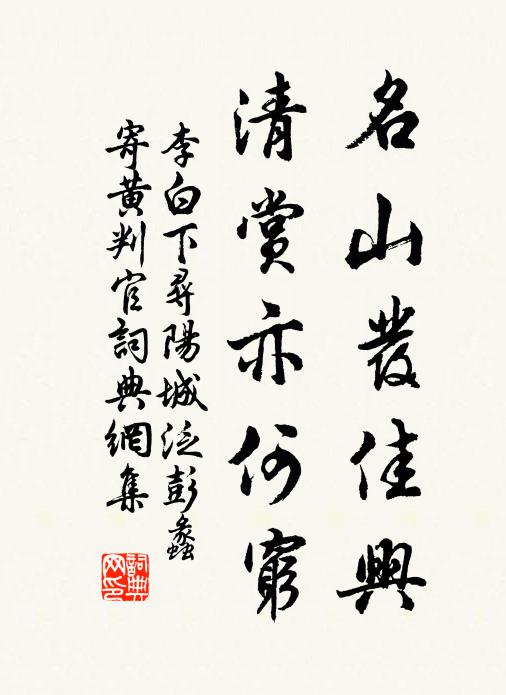 名山發佳興
清賞亦何窮
李白下尋陽城泛彭蠡
寄黃判官詞典網集
詞典網印